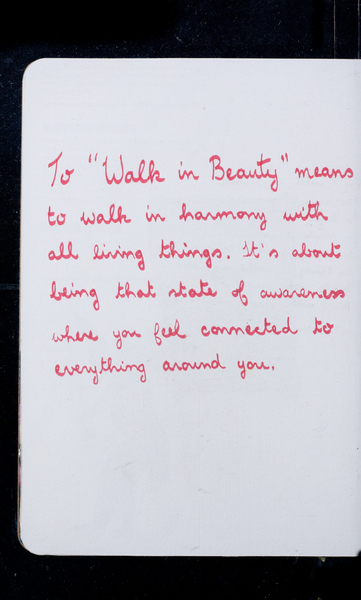 To "Walk in Beauty" means
to walk in harmony with
all living things. It's about
being that state of awareness
where you feel connected to
everything around you.